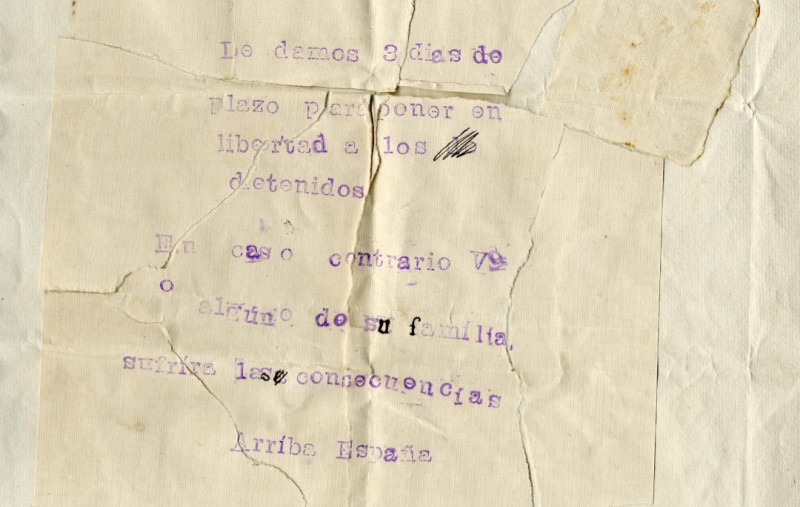 Le damos 3 dias de
plazo para poner en
libertad a los
detenidos
En caso contrario Vd
o
alguno de su familia,
sufrira las consecuencias
Arriba España